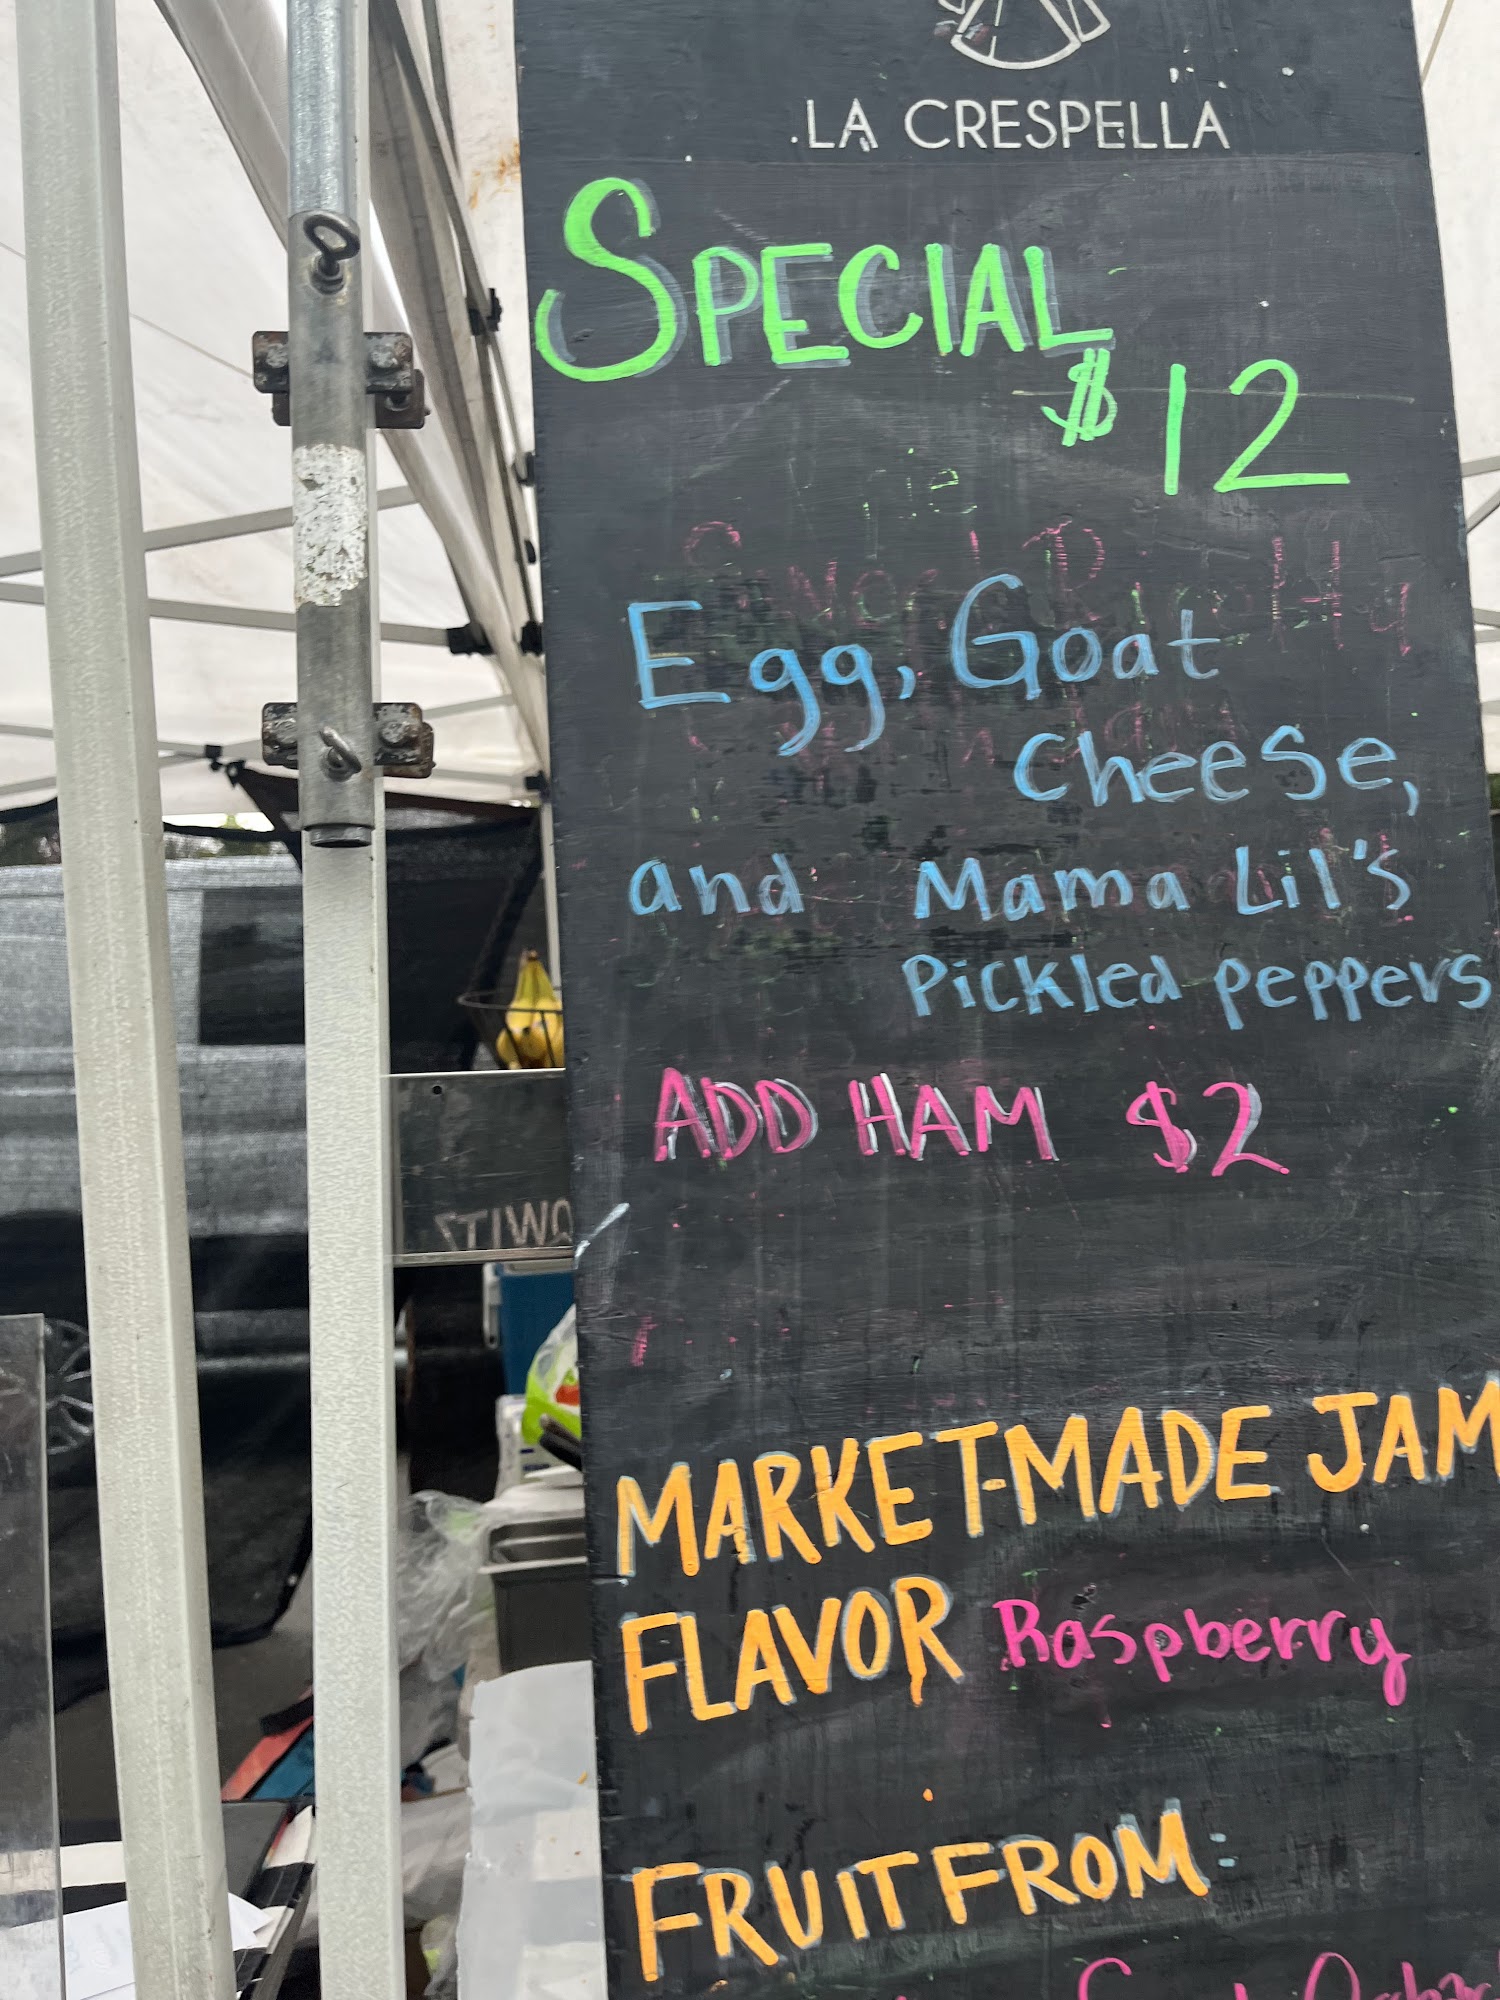 LA CRESPELLA
SPECIAL
$12
Egg, Goat
Cheese,
and Mama Lil's
Pickled peppers
ADD HAM $2
MARKET-MADE JAM
FLAVOR Raspberry
FRUIT FROM: